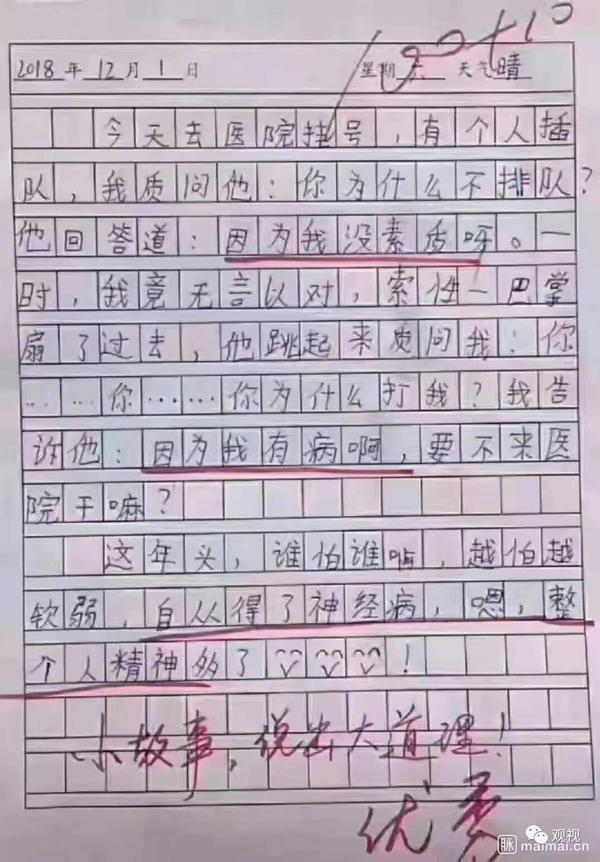 90+10
2018年12月1日 星期六 天气晴
今天去医院挂号，有个人插
队，我质问他：你为什么不排队？
他回答道：因为我没素质呀。一
时，我竟无言以对，索性一巴掌
扇了过去，他跳起来质问我：你
……你……你为什么打我？我告
诉他：因为我有病啊，要不来医
院干嘛？
这年头，谁怕谁呀，越怕越
软弱，自从得了神经病，嗯，整
个人精神多了！
小故事，说出大道理！
优秀
观视
脉 maimai.cn